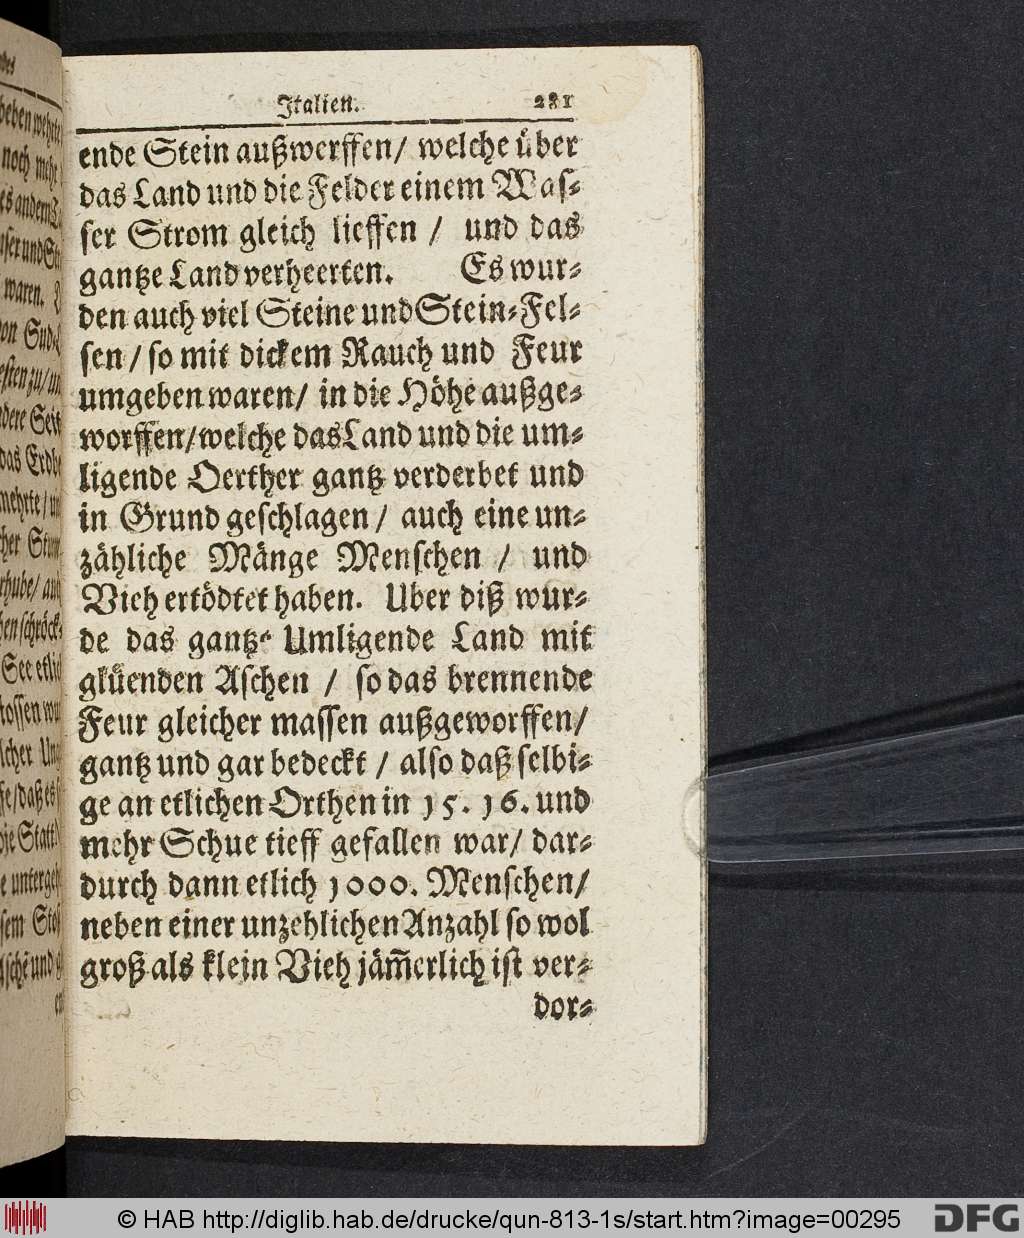 Italien. 281
ende Stein außwerffen/ welche über
das Land und die Felder einem Was-
ser Strom gleich lieffen / und das
gantze Land verheerten. Es wur-
den auch viel Steine und Stein-Fel-
sen / so mit dickem Rauch und Feur
umgeben waren/ in die Höhe außge-
worffen/welche das Land und die um-
ligende Oerther gantz verderbet und
in Grund geschlagen / auch eine un-
zähliche Mänge Menschen / und
Vieh ertödtet haben. Uber diß wur-
de das gantze Umligende Land mit
glüenden Aschen / so das brennende
Feur gleicher massen außgeworffen/
gantz und gar bedeckt / also daß selbi-
ge an etlichen Orthen in 15. 16. und
mehr Schue tieff gefallen war/ dar-
durch dann etlich 1000. Menschen/
neben einer unzehlichen Anzahl so wol
groß als klein Vieh jäm̃erlich ist ver-
dor-
noch mehr
es andern
waren.
von Sud-
esten zu/
das Erdb
See etlic
die Statt
© HAB http://diglib.hab.de/drucke/qun-813-1s/start.htm?image=00295
DFG